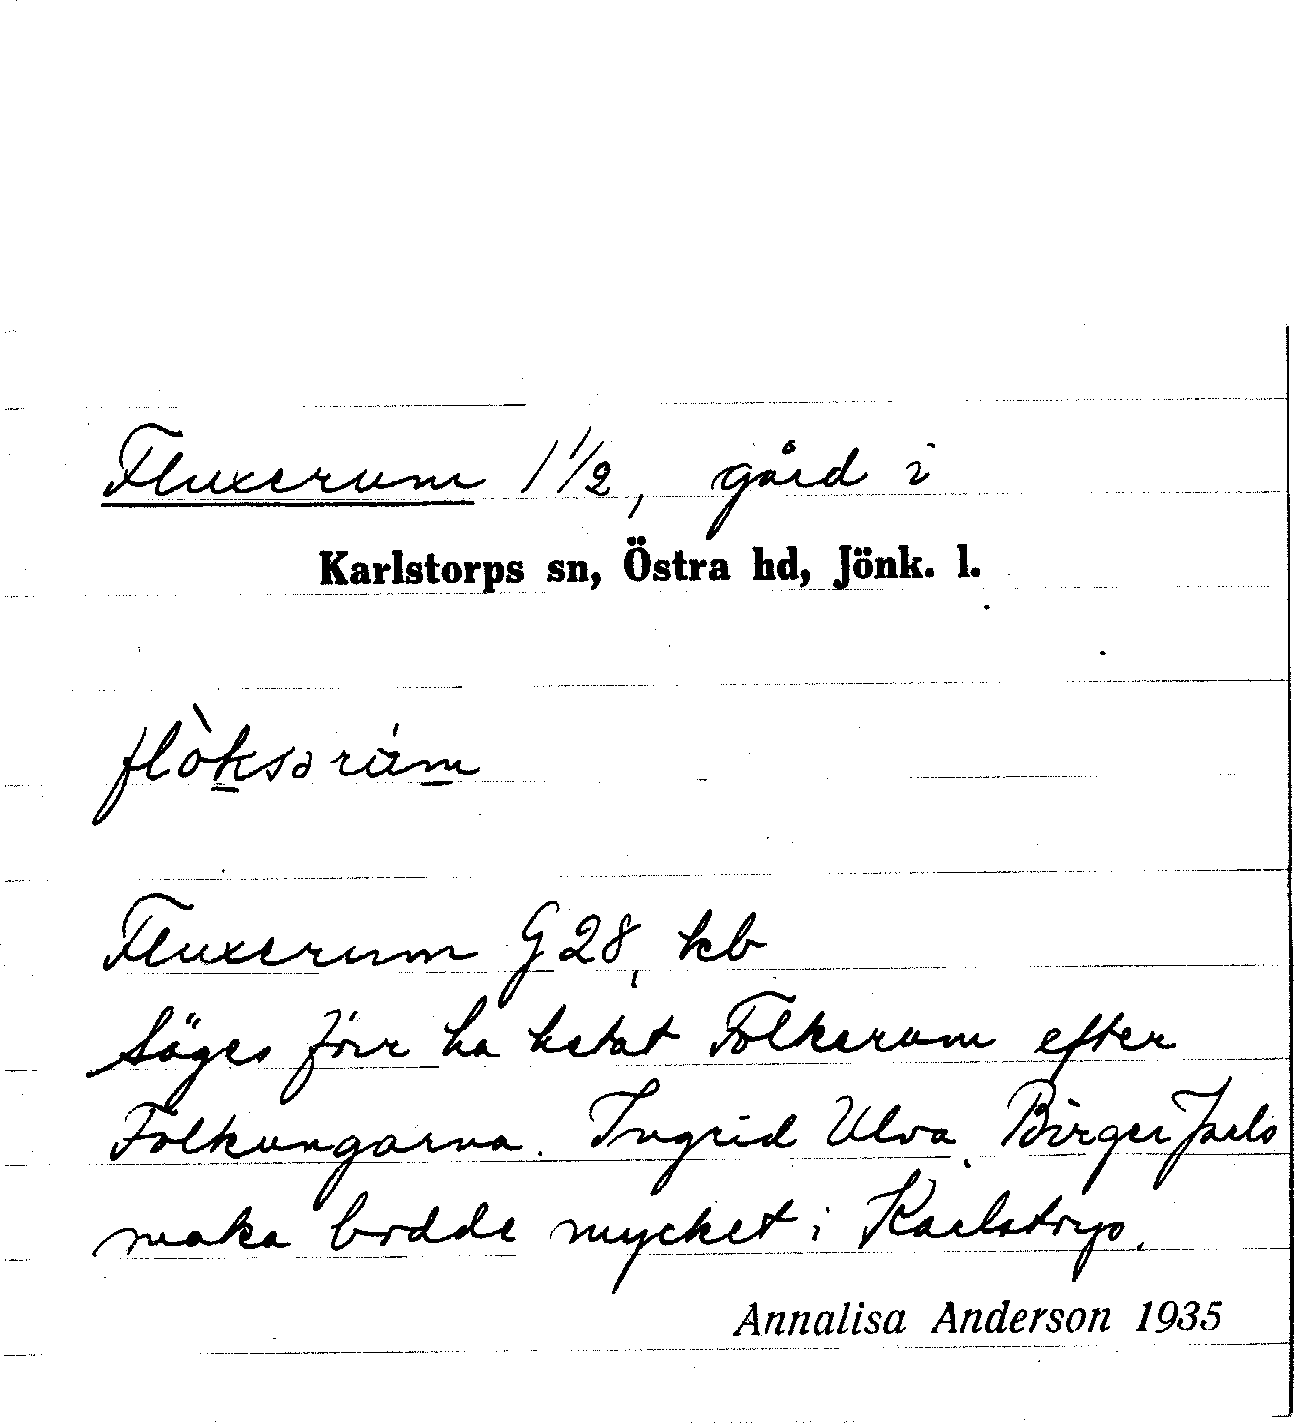 Fluxerum 1 1/2, gård i
Karlstorps sn, Östra hd, Jönk. l.
flòksərúm
Fluxerum G 28, kb
Säges förr ha hetat Folkerum efter
Folkungarna. Ingrid Ulva, Birger Jarls
maka bodde mycket i Karlstorp.
Annalisa Anderson 1935